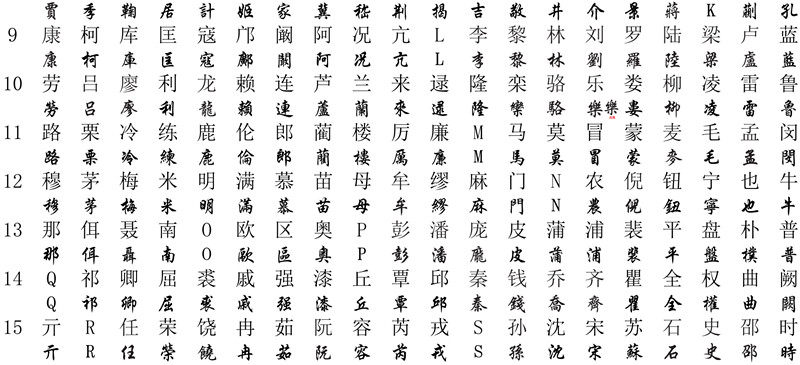 賈 季 鞠 居 計 姬 家 冀 嵇 荆 揭 吉 敬 井 介 景 蔣 K 蒯 孔
9 康 柯 库 匡 寇 邝 阚 阿 况 亢 L 李 黎 林 刘 罗 陆 梁 卢 蓝
康 柯 庫 匡 寇 鄺 闞 阿 况 亢 L 李 黎 林 劉 羅 陸 梁 盧 藍
10 劳 吕 廖 利 龙 赖 连 芦 兰 来 逯 隆 栾 骆 乐 娄 柳 凌 雷 鲁
勞 呂 廖 利 龍 賴 連 蘆 蘭 來 逯 隆 欒 駱 樂 樂 婁 柳 凌 雷 魯
11 路 栗 冷 练 鹿 伦 郎 蔺 楼 厉 廉 M 马 莫 冒 蒙 麦 毛 孟 闵
路 栗 冷 練 鹿 倫 郎 藺 樓 厲 廉 M 馬 莫 冒 蒙 麥 毛 孟 閔
12 穆 茅 梅 米 明 满 慕 苗 母 牟 缪 麻 门 N 农 倪 钮 宁 也 牛
穆 茅 梅 米 明 滿 慕 苗 母 牟 繆 麻 門 N 農 倪 鈕 寧 也 牛
13 那 佴 聂 南 O 欧 区 奥 P 彭 潘 庞 皮 蒲 浦 裴 平 盘 朴 普
那 佴 聶 南 O 歐 區 奥 P 彭 潘 龐 皮 蒲 浦 裴 平 盤 樸 普
14 Q 祁 卿 屈 裘 戚 强 漆 丘 覃 邱 秦 钱 乔 齐 瞿 全 权 曲 阙
Q 祁 卿 屈 裘 戚 强 漆 丘 覃 邱 秦 錢 喬 齊 瞿 全 權 曲 闕
15 亓 R 任 荣 饶 冉 茹 阮 容 芮 戎 S 孙 沈 宋 苏 石 史 邵 时
亓 R 任 榮 饒 冉 茹 阮 容 芮 戎 S 孫 沈 宋 蘇 石 史 邵 時